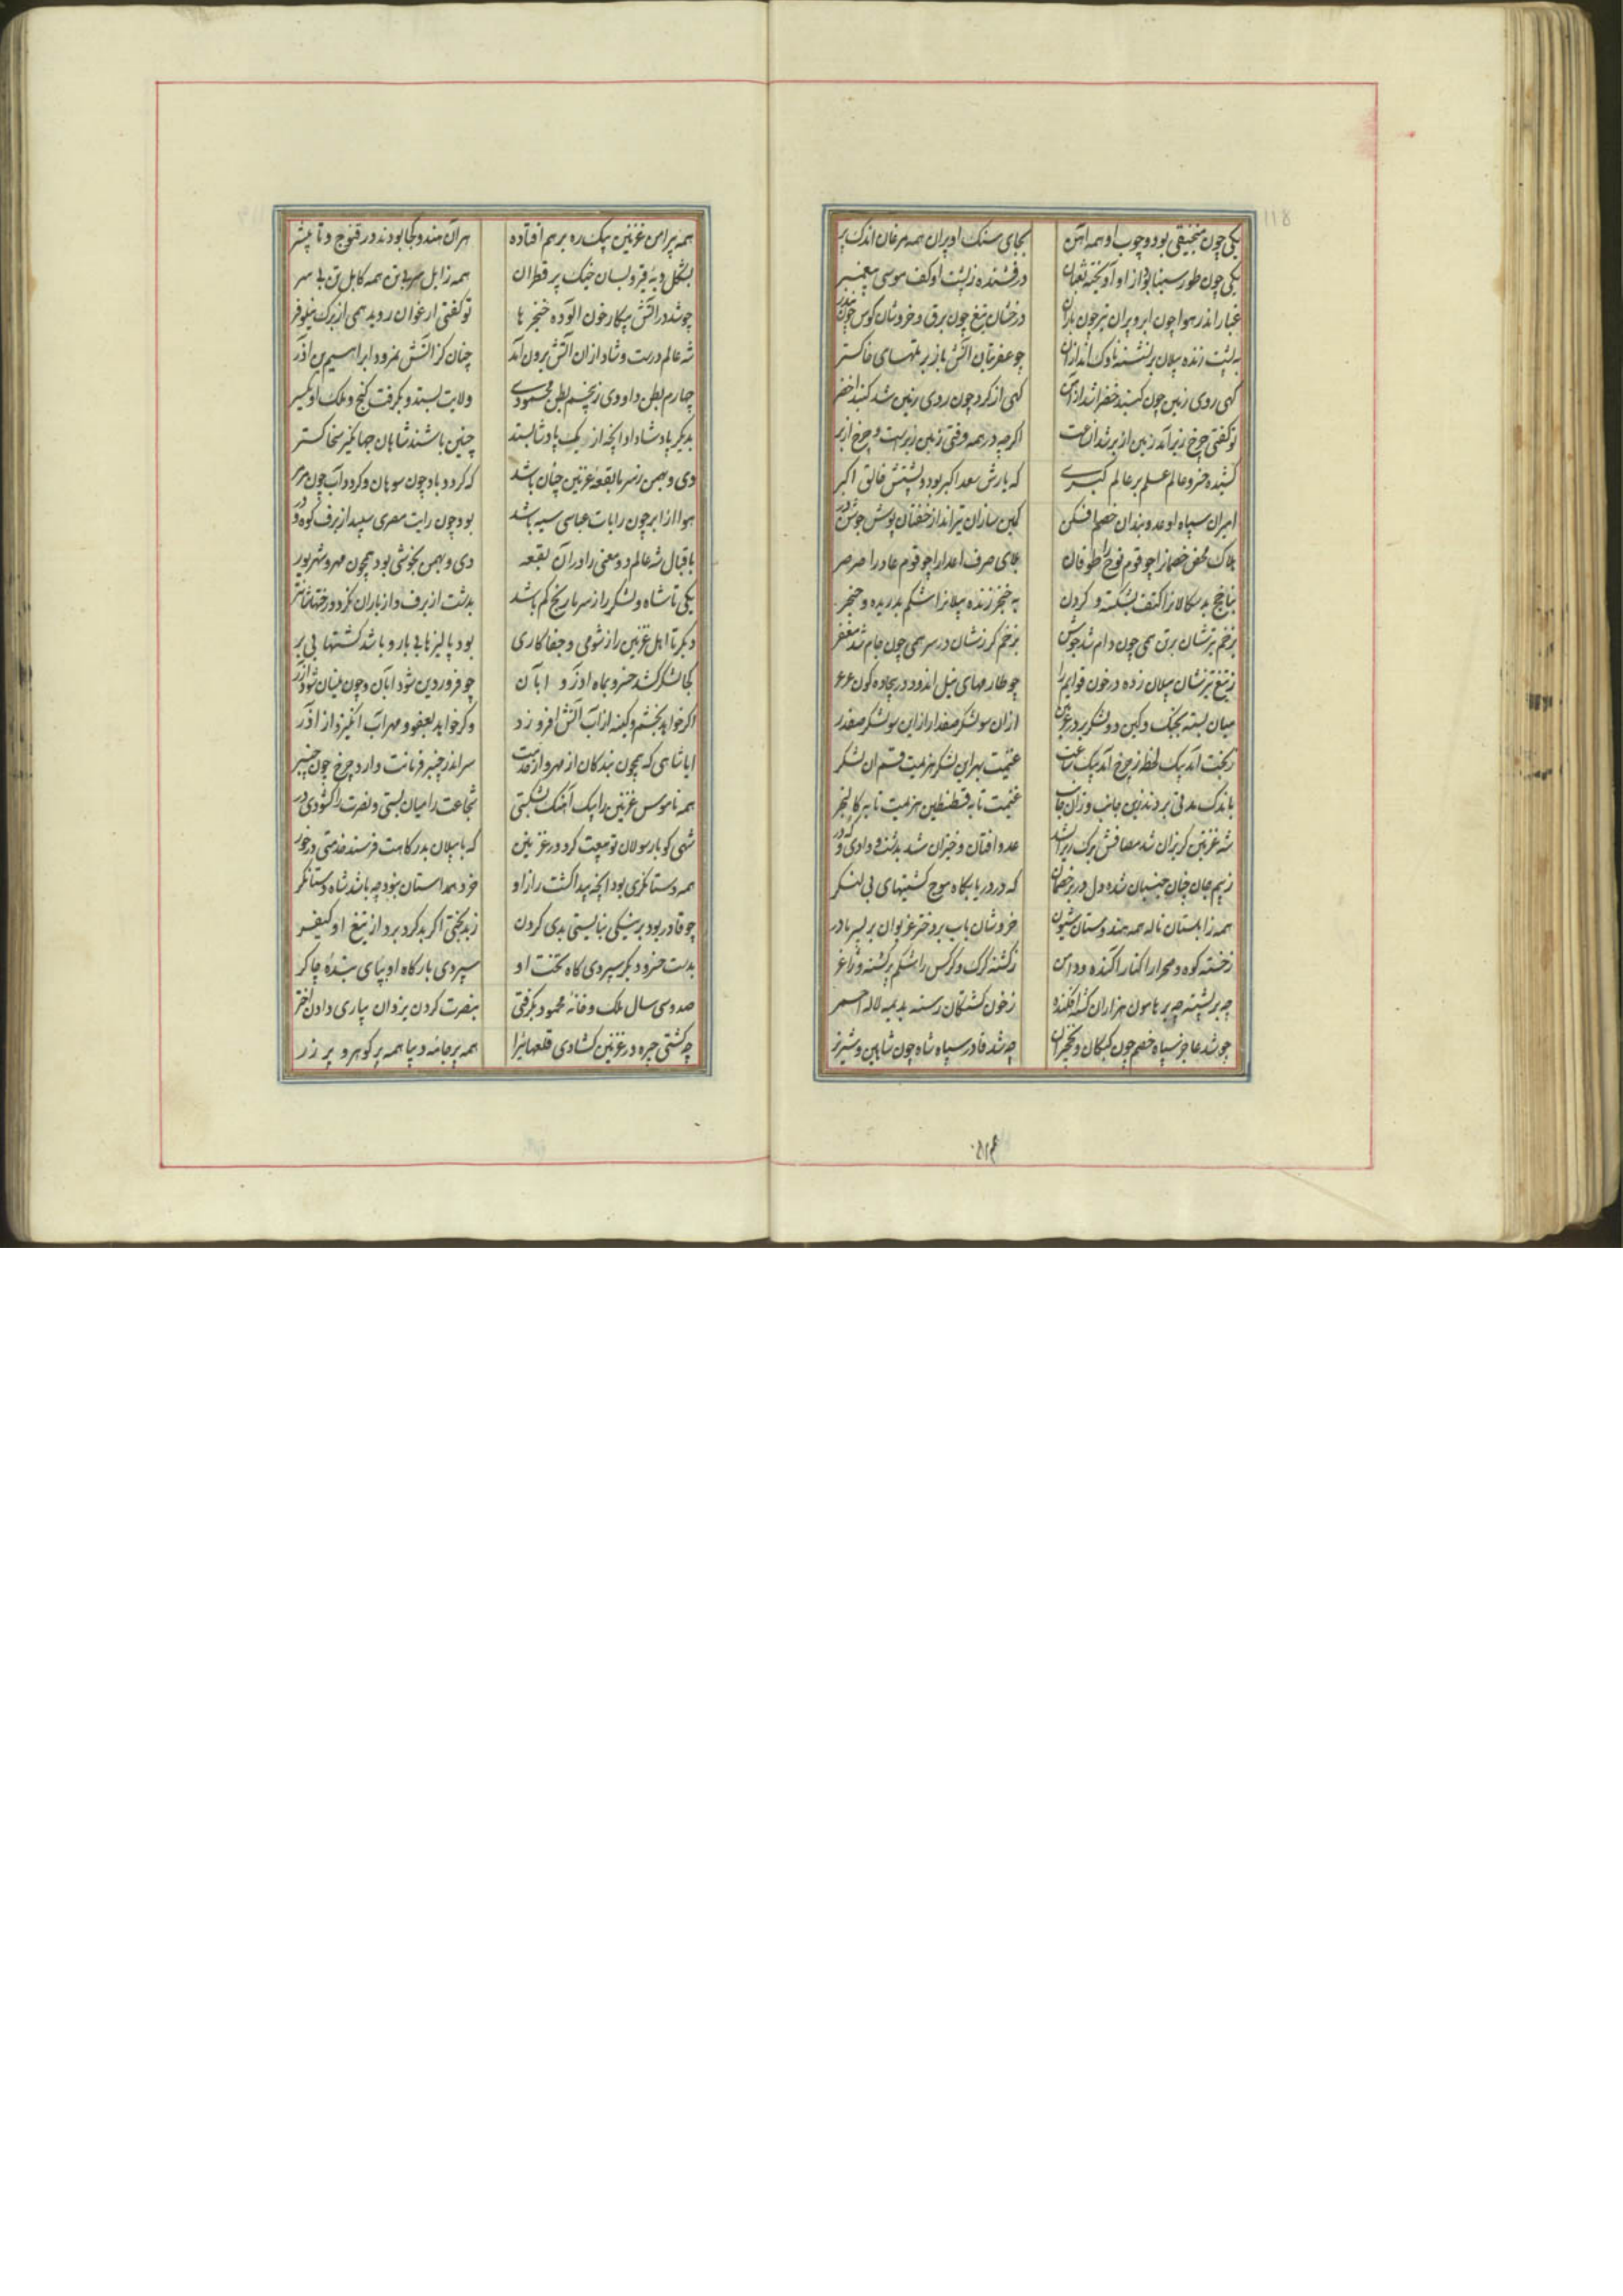 118
یکی چون منجنیقی بود و چوب او همه آهن بجای سنک او پران همه مرغان اندک پر
یکی چون طور سینا بود از او آویخته ثعبان درفشنده ز پشت او کف موسی پیغمبر
غبار اندر هوا چون ابر و پران تیر چون باران درخشان تیغ چون برق و خروشان کوس چون تندر
به پشت زنده پیلان بر نشسته ناوک اندازان چو عفریتان آتش باز بر پلهای خاکستر
کهی روی زمین چون کنبد خضرا شد از آهن کهی از کرد چون روی زمین شد کنبد اخضر
تو کفتی چرخ زیر آمد زمین از بر شد آن ساعت اکرچه در همه وقتی زمین زیرست و چرخ از بر
کشیده خسرو عالم علم بر عالم کبری که یارش سعد اکبر بود و پشتش خالق اکبر
امیران سپاه او عدو بندان خصم افکن کمین سازان تیرانداز خفتان پوش جوشن در
هلاک محض خصمانرا چو قوم نوح را طوفان بلای صرف اعدا را چو قوم عاد را صرصر
بناچخ بدسکالانرا کتف بشکسته و کردن به خنجر زنده پیلانرا شکم بدریده و حنجر
بزخم تیرشان بر تن همی چون دام شد جوشن بزخم کرزشان در سر همی چون جام شد مغفر
ز تیغ تیزشان پیلان زده در خون قوایم را چو طارمهای نیل اندود در بیجاده کون عرعر
میان بسته بجنک و کین دو لشکر بر در غزنین ازان سو لشکر صفدار ازین سو لشکر صفدر
ز بخت آمد بیک لحظه ز چرخ آمد بیک ساعت غنیمت بهر این لشکر هزیمت قسم آن لشکر
باندک مدتی بردند زین جانب و زان جانب غنیمت تا به قسطنطین هزیمت تا به کالنجر
شه غزنین کریزان شد مصافش برک ریزان شد عدو افتان و خیزان شد بدشت و وادی و کردر
ز بیم جان چنان جنبان شده دل در بر خصمان که در دریا بکاه موج کشتیهای بی لنکر
همه زابلستان ناله همه هندوستان شیون خروشان باب بر دختر غریوان بر پسر مادر
ز خسته کوه و صحرا را کنار آکنده و دامن ز کشته کرک و کرکس را شکم پر کشته و ژاغر
چه بر پشته چه بر هامون هزاران کشته افکنده ز خون کشتکان رسته بدیمه لاله احمر
چو شد عاجز سپاه خصم چون کبکان و نخجیران چه شد قادر سپاه شاه چون شاهین و شیر نر
همه پیرامن غزنین بیک ره بر هم افتاده هر آن هندو کجا بودند در قنوج و تا پیشر
بشکل دبه قیر و بسان خیک پر قطران همه زابل سر بی تن همه کابل تن بی سر
چو شد در آتش پیکار خون آلوده خنجرها تو کفتی ارغوان روید همی از برک نیلوفر
شه عالم درست و شاد ازان آتش برون آمد چنان کز آتش نمرود ابراهیم بن آذر
چهارم بطن داوودی ز پنجم بطن محمودی ولایت بستد و بکرفت کنج و ملک او یکسر
بدیکر پادشا داد آنچه از یک پادشا بستد چنین باشند شاهان جهانکیر سخاکستر
دی و بهمن ز سرما بقعه غزنین چنان باشد که کردد باد چون سوهان و کردد آب چون مرمر
هوا از ابر چون رایات عباسی سیه باشد بود چون رایت مصری سپید از برف کوه و در
باقبال شه عالم دو معنی را در آن بقعه دی و بهمن بخوشی بود همچون مهر و شهریور
یکی تا شاه و لشکر را ز سرما رنج کم باشد بدشت از برف و از باران نکردد رختهاشان تر
دیکر تا اهل غزنین را ز شومی و جفاکاری بود پالیزها بی بار و باشد کشتها بی بر
کجا لشکر کشد خسرو بماه آذر و آبان چو فروردین شود آبان و چون نیسان شود آذر
اکر خواهد بخشم و کینه از آب آتش افروزد وکر خواهد بعفو و مهر آب انکیزد از آذر
ایا شاهی که همچون بندکان از مهر و از خدمت سر اندر چنبر فرمانت دارد چرخ چون چنبر
همه ناموس غزنین را بیک آهنک بشکستی شجاعت را میان بستی و نصرت را کشودی در
شهی کو با رسولان تو بیعت کرد در غزنین که با پیلان بدرکاهت فرستد خدمتی در خور
همه دستانکری بود آنچه پیدا کشت راز او خرد همداستان نبود چه باشد شاه دستانکر
چو قادر بود بر نیکی نبایستی بدی کردن ز بدبختی اکر بد کرد برد از تیغ او کیفر
بدست خسرو دیکر سپردی کاه و تخت او سپردی بارکاه او بپای بنده چاکر
صد و سی سال ملک و خانه محمود بکرفتی بنصرت کردن یزدان بیاری دادن اختر
چه کشتی چیره در غزنین کشادی قلعهائیرا همه پر جامه دیبا همه پر کوهر و پر زر